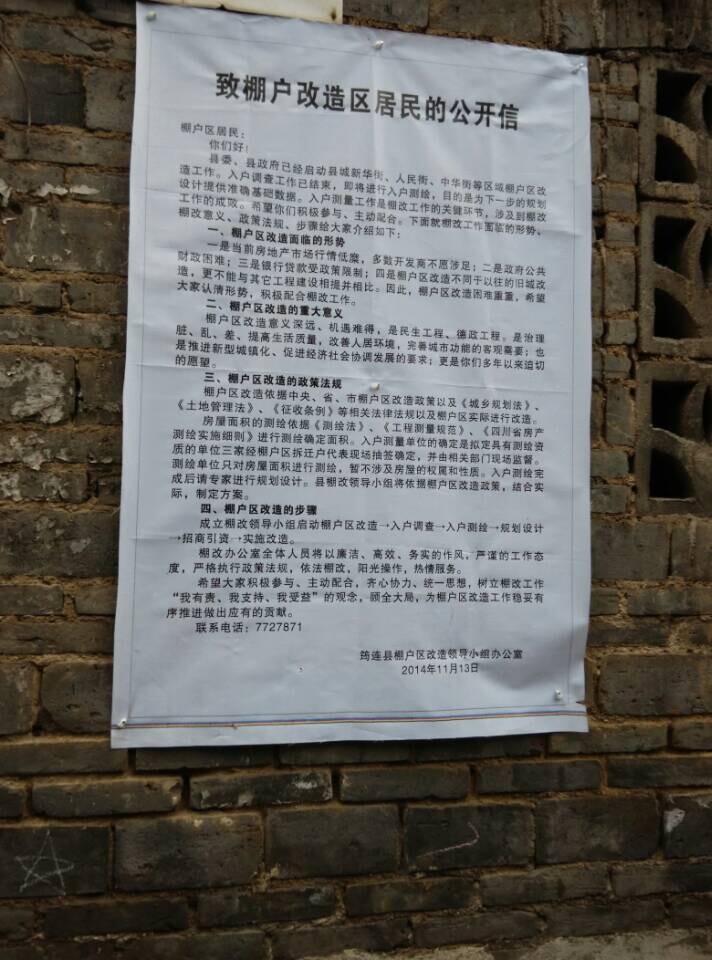 致棚户改造区居民的公开信
棚户区居民：
你们好！
县委、县政府已经启动县城新华街、人民街、中华街等区域棚户区改
造工作。入户调查工作已结束，即将进行入户测绘，目的是为下一步的规划
设计提供准确基础数据。入户测量工作是棚改工作的关健环节，涉及到棚改
工作的成败。希望你们积极参与、主动配合。下面就棚改工作面临的形势、
棚改意义、政策法规、步骤给大家介绍如下：
一、棚户区改造面临的形势
一是当前房地产市场行情低糜，多数开发商不愿涉足；二是政府公共
财政困难；三是银行贷款受政策限制；四是棚户区改造不同于以往的旧城改
造，更不能与其它工程建设相提并相比。因此，棚户区改造困难重重，希望
大家认清形势，积极配合棚改工作。
二、棚户区改造的重大意义
棚户区改造意义深远、机遇难得，是民生工程、德政工程。是治理
脏、乱、差、提高生活质量，改善人居环境，完善城市功能的客观需要；也
是推进新型城镇化、促进经济社会协调发展的要求；更是你们多年以来迫切
的愿望。
三、棚户区改造的政策法规
棚户区改造依据中央、省、市棚户区改造政策以及《城乡规划法》、
《土地管理法》、《征收条例》等相关法律法规以及棚户区实际进行改造。
房屋面积的测绘依据《测绘法》、《工程测量规范》、《四川省房产
测绘实施细则》进行测绘确定面积。入户测量单位的确定是拟定具有测绘资
质的单位三家经棚户区拆迁户代表现场抽签确定，并由相关部门现场监督。
测绘单位只对房屋面积进行测绘，暂不涉及房屋的权属和性质。入户测绘完
成后请专家进行规划设计。县棚改领导小组将依据棚户区改造政策，结合实
际，制定方案。
四、棚户区改造的步骤
成立棚改领导小组启动棚户区改造→入户调查→入户测绘→规划设计
→招商引资→实施改造。
棚改办公室全体人员将以廉洁、高效、务实的作风，严谨的工作态
度，严格执行政策法规，依法棚改，阳光操作，热情服务。
希望大家积极参与、主动配合，齐心协力、统一思想，树立棚改工作
“我有责、我支持、我受益”的观念，顾全大局，为棚户区改造工作稳妥有
序推进做出应有的贡献。
联系电话：7727871
筠连县棚户区改造领导小组办公室
2014年11月13日